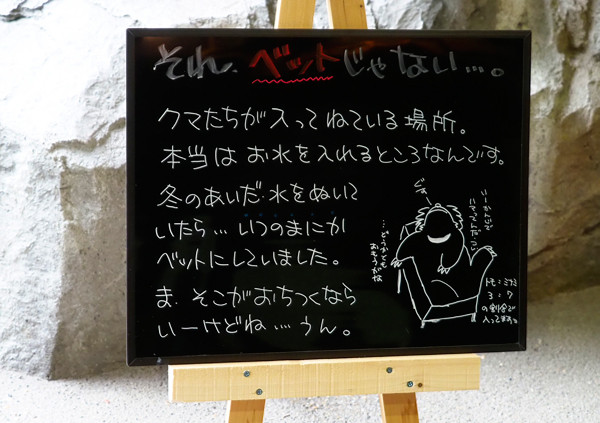 それ、ベットじゃない…。
クマたちが入ってねている場所。
本当はお水を入れるところなんです。
冬のあいだ、水をぬいて
いたら…いつのまにか
ベットにしていました。
ま、そこがおちつくなら
いーけどね……うん。
ぐぅ
…どうかとも
おもうがな
トモ:ミナミ
3:7
の割合で
入ってます。